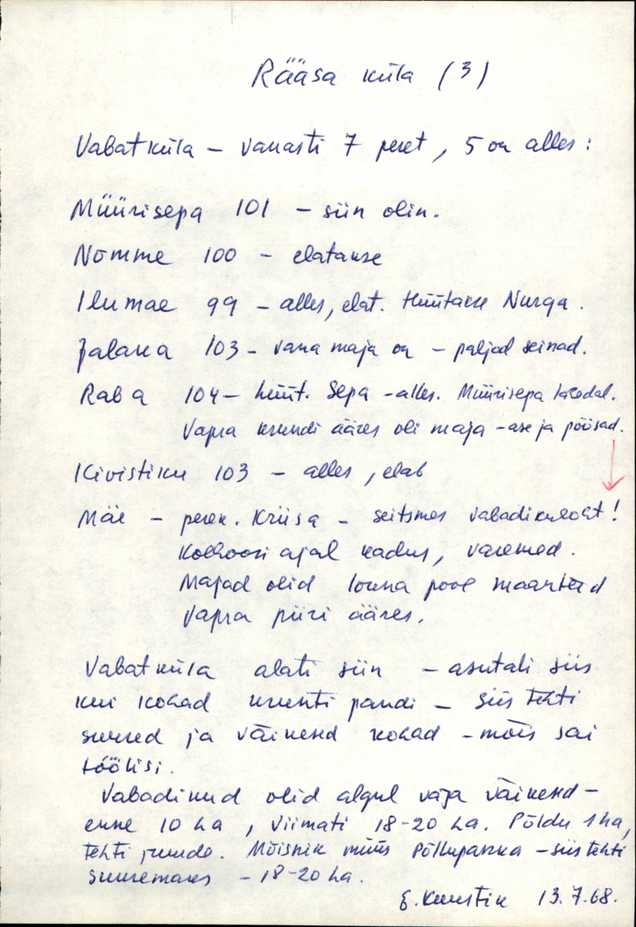 Rääsa küla (3)
Vabatküla – vanasti 7 peret, 5 on alles:
Müürisepa 101 – siin olin.
Nõmme 100 – elatakse
Ilumäe 99 – alles, elat. Hüütakse Nurga.
Jalaka 103 – vana maja on – paljad seinad.
Raba 104 – hüüt. Sepa – alles. Müürisepa lähedal.
Vapra krundi ääres oli maja – ase ja põõsad.
Kivistiku 103 – alles, elab
Mäe – perek. Kriisa – seitsmes vabadikukoht!
Kolhoosi ajal kadus, varemed.
Majad olid lõuna pool maanteed
Vapra piiri ääres.
Vabatküla alati siin – asutati siis
kui kohad krunti pandi – siis tehti
suured ja väikesed kohad – mõis sai
töölisi.
Vabadikud olid algul väga väikesed –
enne 10 ha, viimati 18-20 ha. Põldu 1 ha,
tehti juurde. Mõisnik müüs Põllupanka – siis tehti
suuremaks – 18-20 ha.
E. Kuustik 13.7.68.